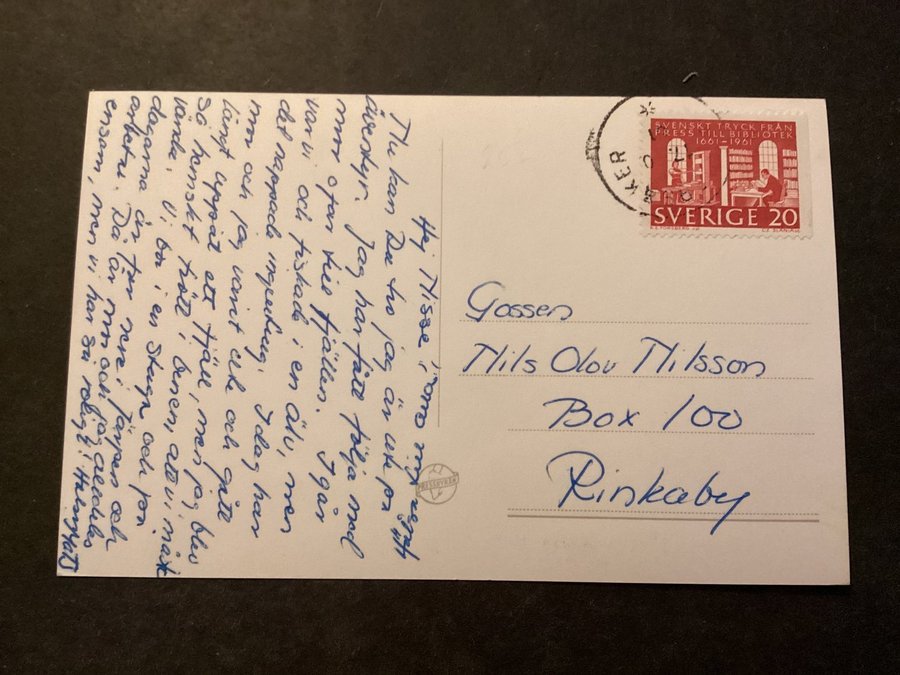 Hej Nisse!
Nu kan Du tro jag är ute på
äventyr. Jag har fått följa med
mm ofar till fjällen. I går
var vi och fiskade i en älv, men
det nappade ingenting. Idag har
mm och jag varit ute och gått
långt uppåt ett fjäll, men jag blev
så hemskt trött i benen, att vi måste
vända. Vi bor i en stuga och på
dagarna är far nere i Järpen och
arbetar. Då är mm och jag alldeles
ensam, men vi har så roligt!
SVENSKT TRYCK FRÅN
PRESS TILL BIBLIOTEK
1661-1961
SVERIGE 20
ÅKER
Gossen
Nils Olov Nilsson
Box 100
Rinkaby
PRESSBYRÅN